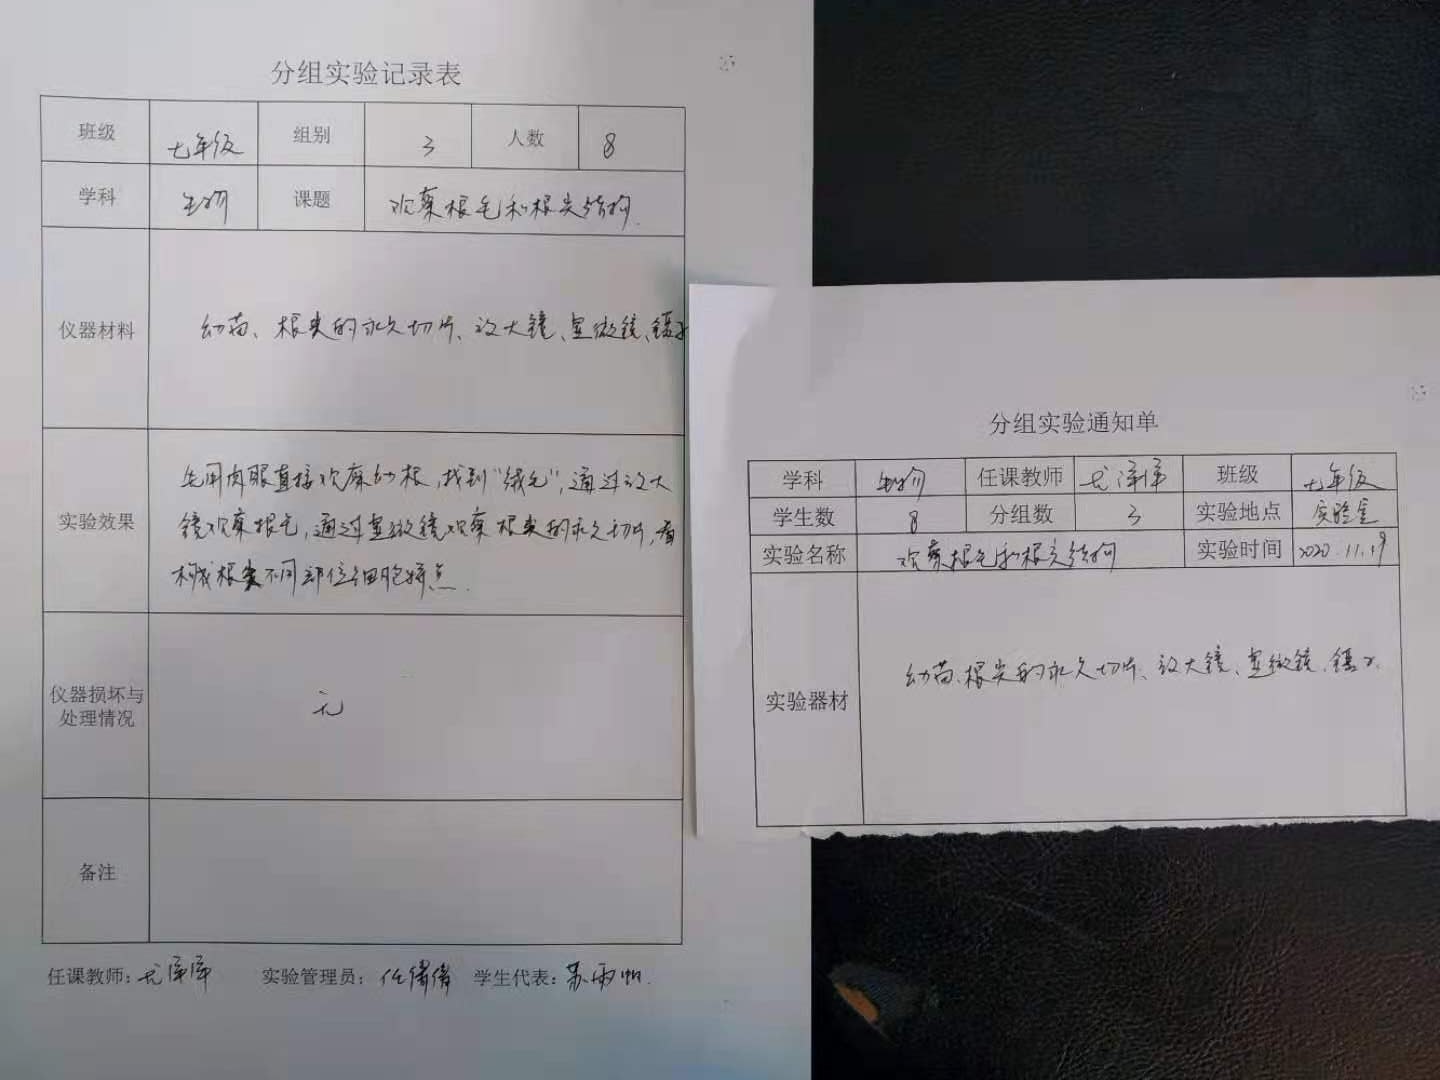 分组实验记录表
班级 七年级 组别 3 人数 8
学科 生物 课题 观察根毛和根尖结构.
仪器材料 幼苗、根尖的永久切片、放大镜、显微镜、镊子
实验效果
先用肉眼直接观察幼根,找到"绒毛",通过放大
镜观察根毛,通过显微镜观察根尖的永久切片,看
构成根尖不同部位细胞特点.
仪器损坏与
处理情况
无
备注
任课教师: 实验管理员: 任倩倩 学生代表: 苏雨帆.
分组实验通知单
学科 生物 任课教师 班级 七年级
学生数 8 分组数 3 实验地点 实验室
实验名称 观察根毛和根尖结构 实验时间 2020.11.19
实验器材 幼苗、根尖的永久切片、放大镜、显微镜、镊子.